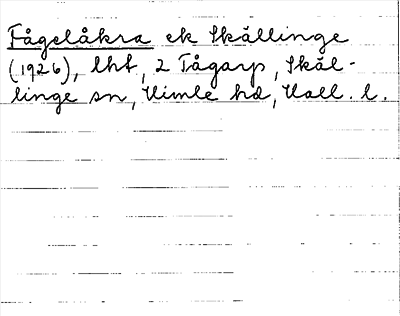 Fågelåkra ek Skällinge
(1926), lht, 2 Fågarp, Skäl-
linge sn, Himle hd, Hall. l.